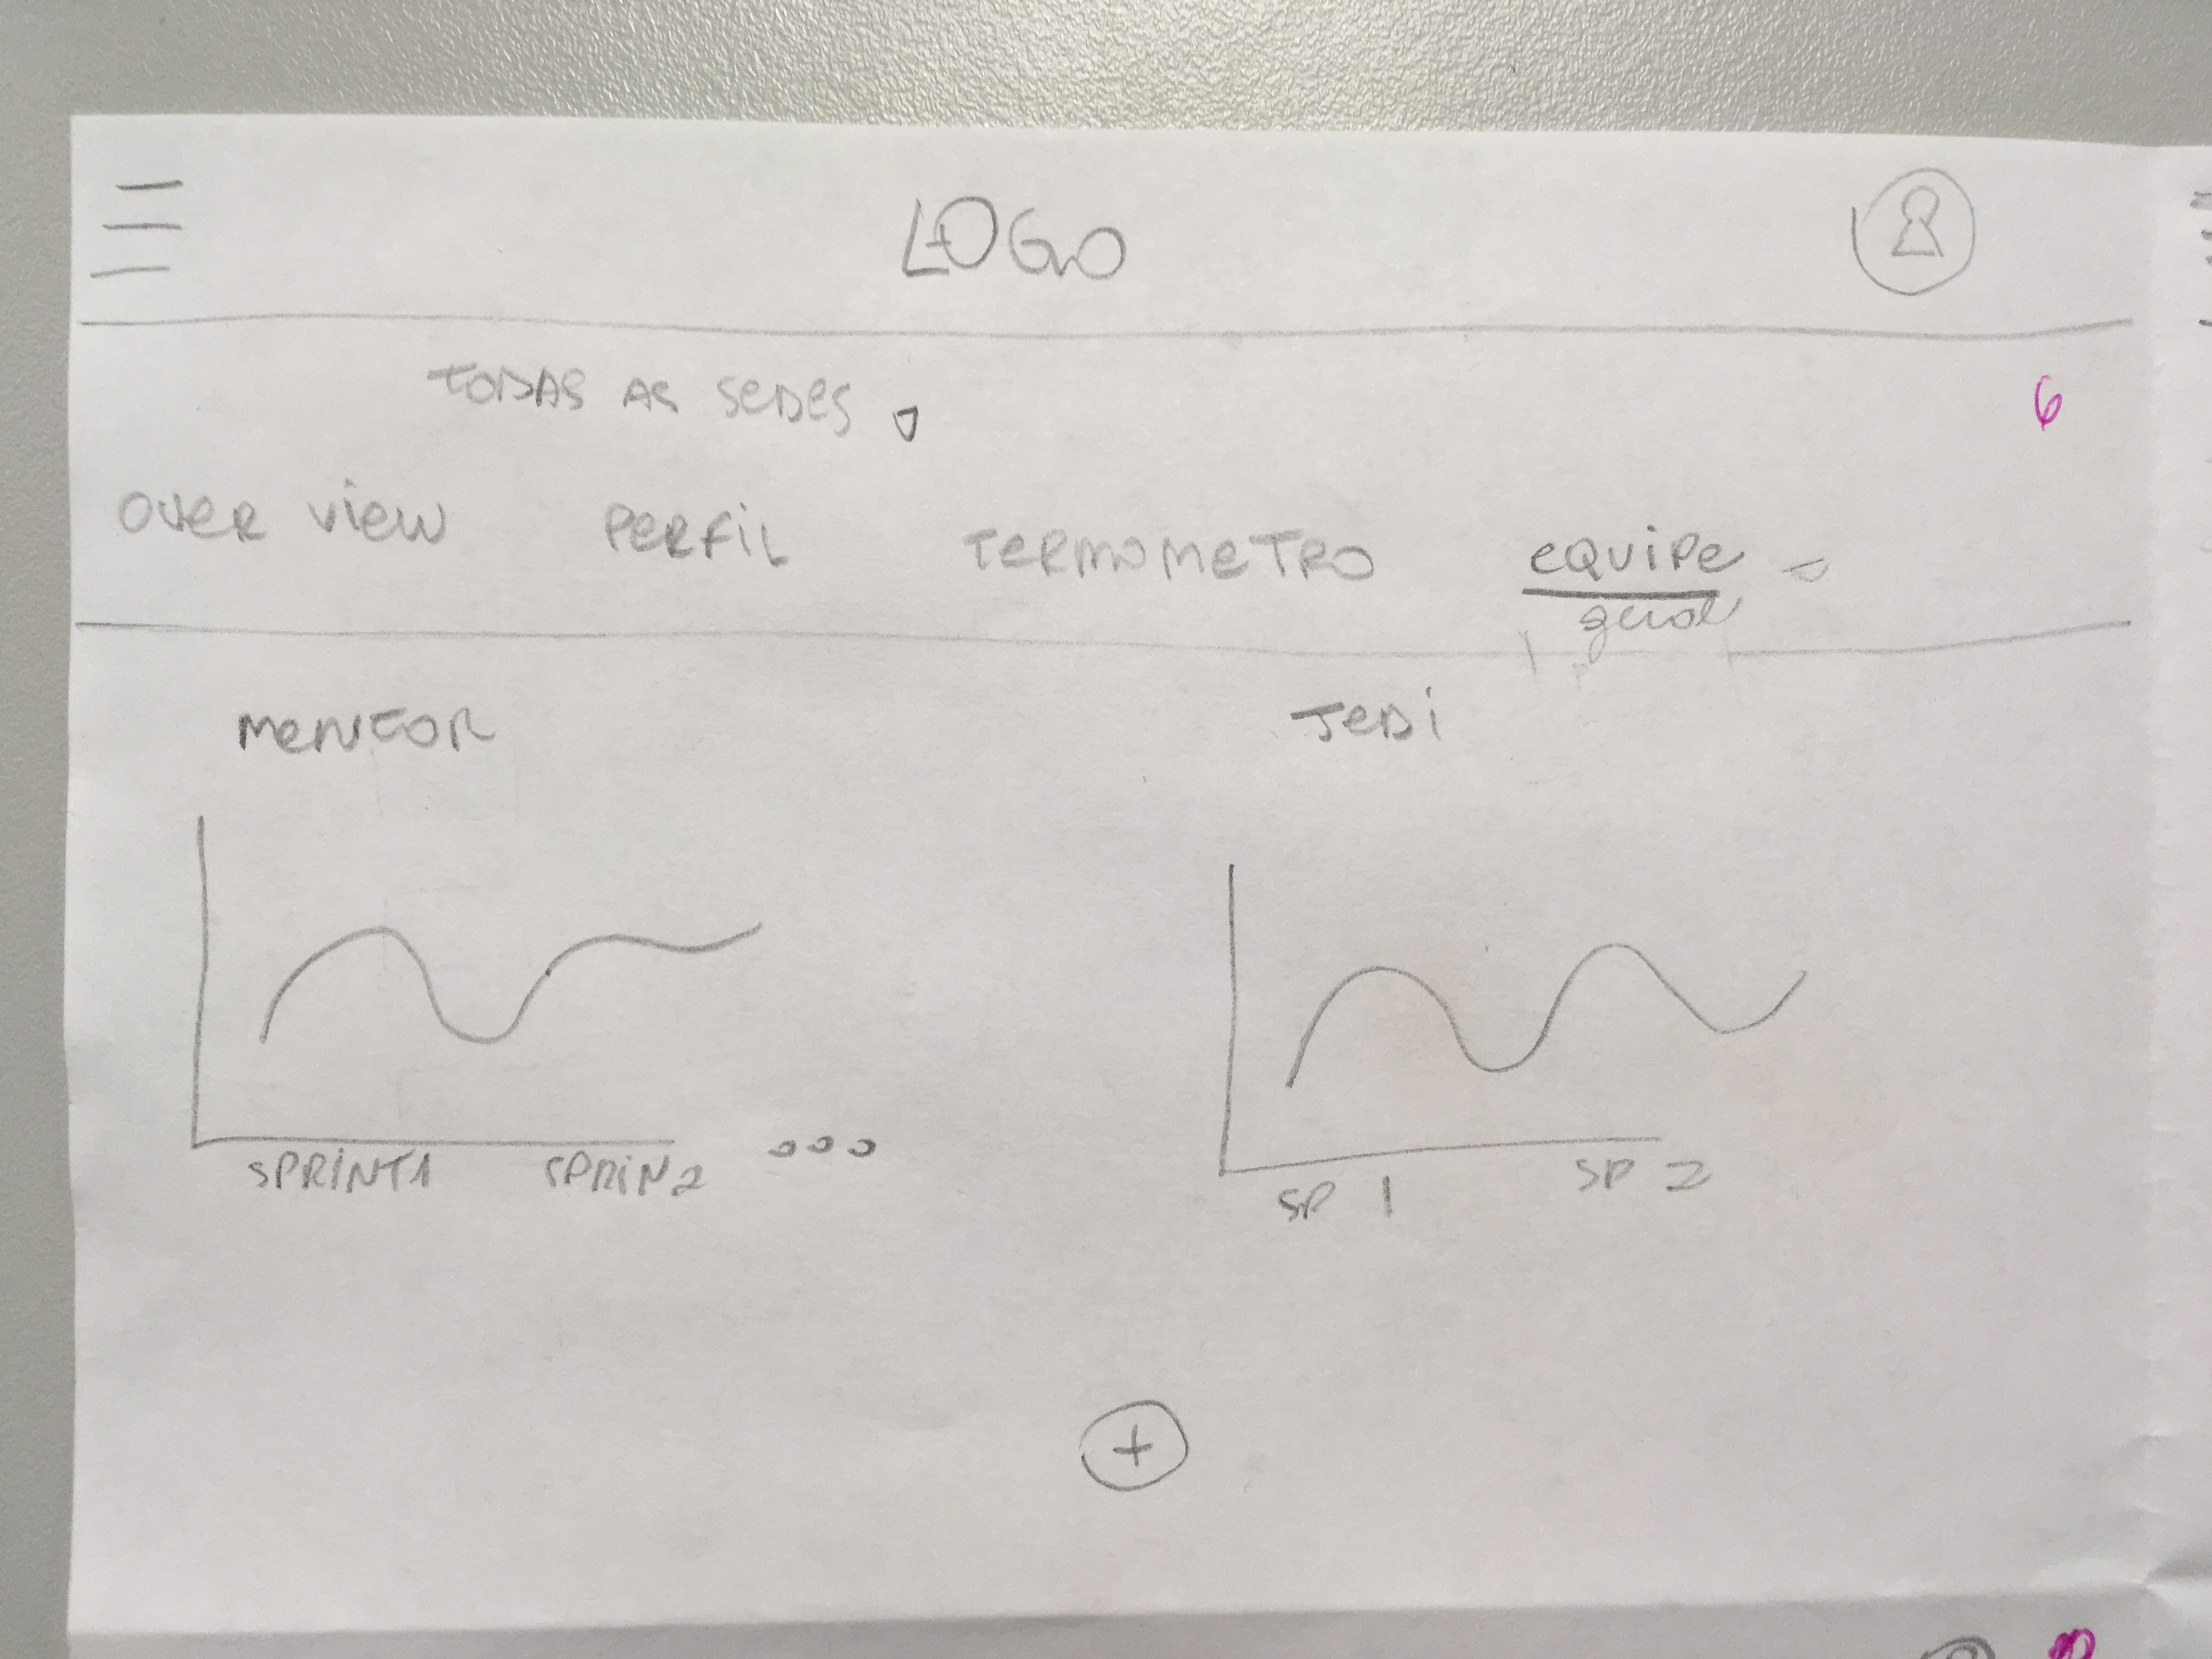 LOGO
TODAS AS SEDES
6
OVER VIEW PERFIL TERMOMETRO EQUIPE
geral
MENTOR JEDI
SPRINT1 SPRIN2 SP 1 SP 2
+